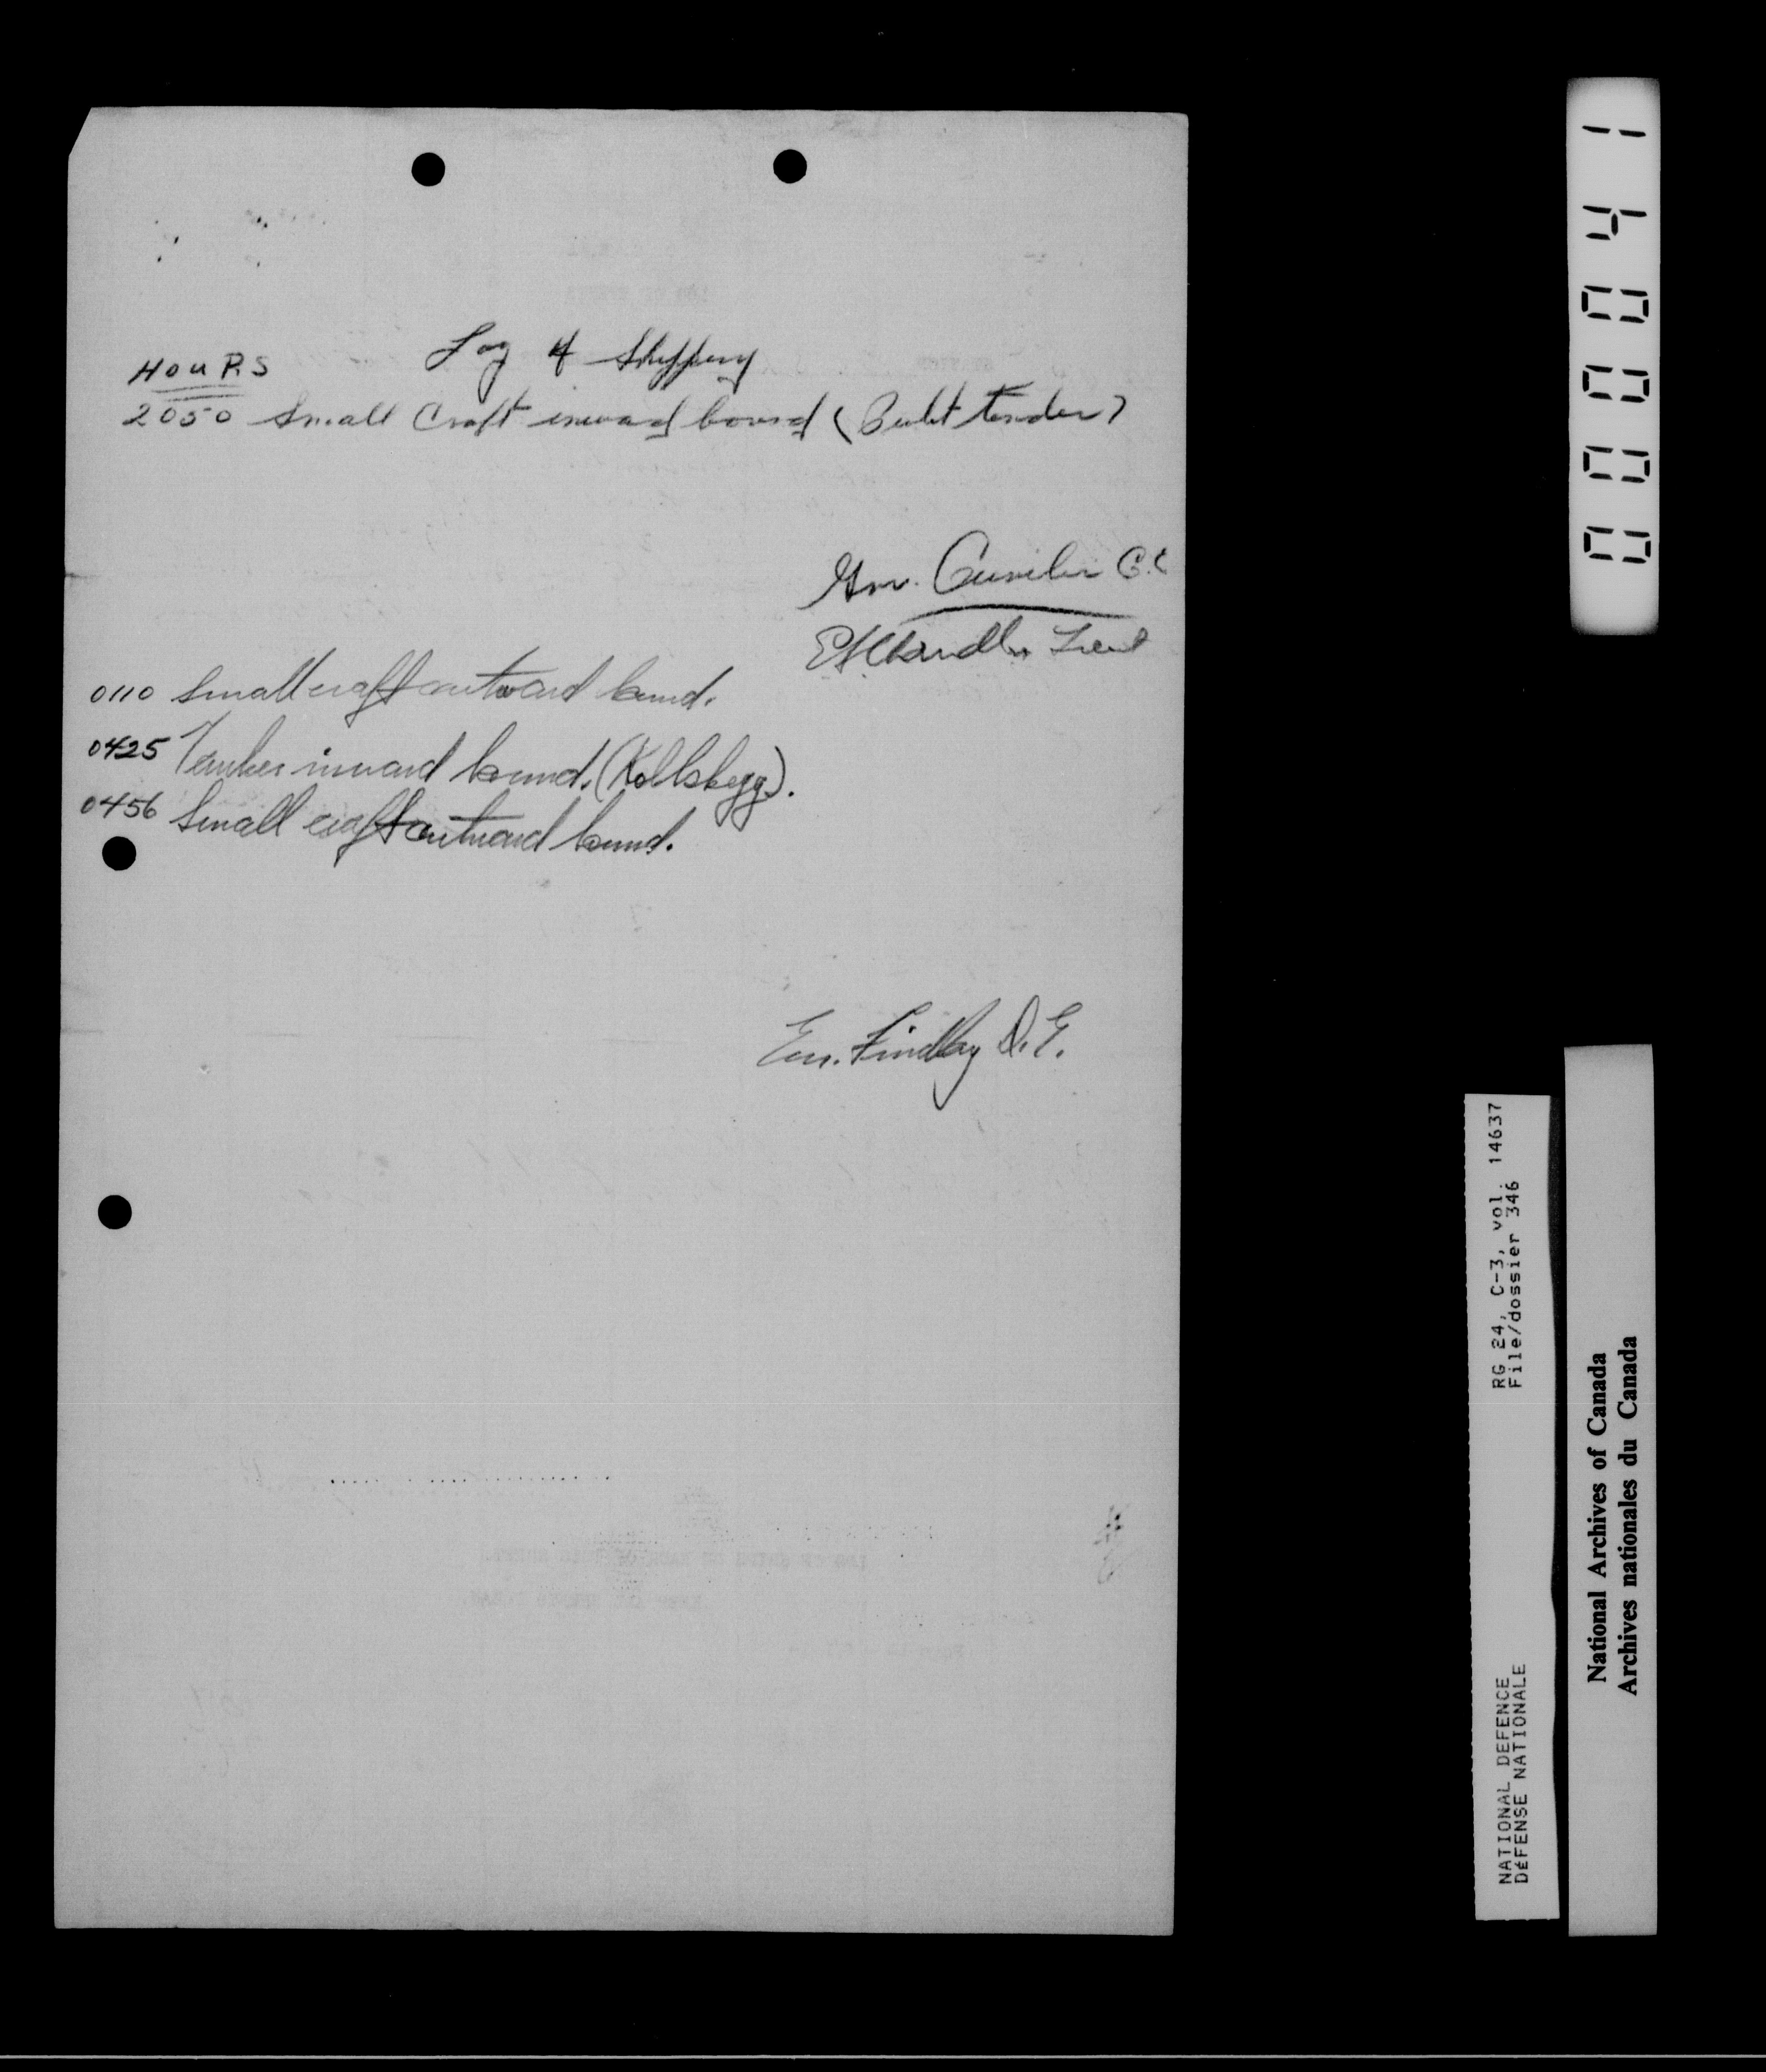 Log of Shipping
HOURS
2050 Small Craft inward bound ( tender)
Gnr. C.C
E Chandler Lieut
0110 Small craft outward bound.
0425 Tanker inward bound. (Kollskegg).
0456 Small craft outward bound.
Findlay D.E.
000041
RG 24, C-3, vol. 14637
File/dossier 346
NATIONAL DEFENCE
DÉFENSE NATIONALE
National Archives of Canada
Archives nationales du Canada